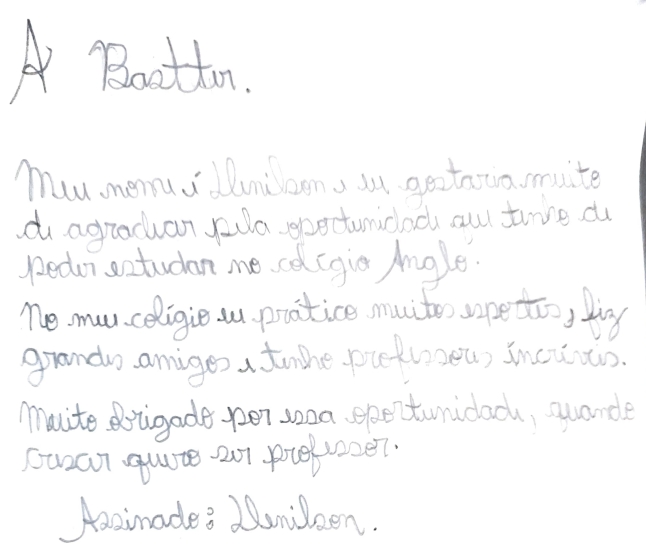 A Bastter.
Meu nome é Denilson e eu gostaria muito
de agradecer pela oportunidade que tenho de
poder estudar no colégio Anglo.
No meu colégio eu prático muitos esportes, fiz
grandes amigos e tenho professores incríveis.
Muito obrigado por essa oportunidade, quando
crescer quero ser professor.
Assinado: Denilson.